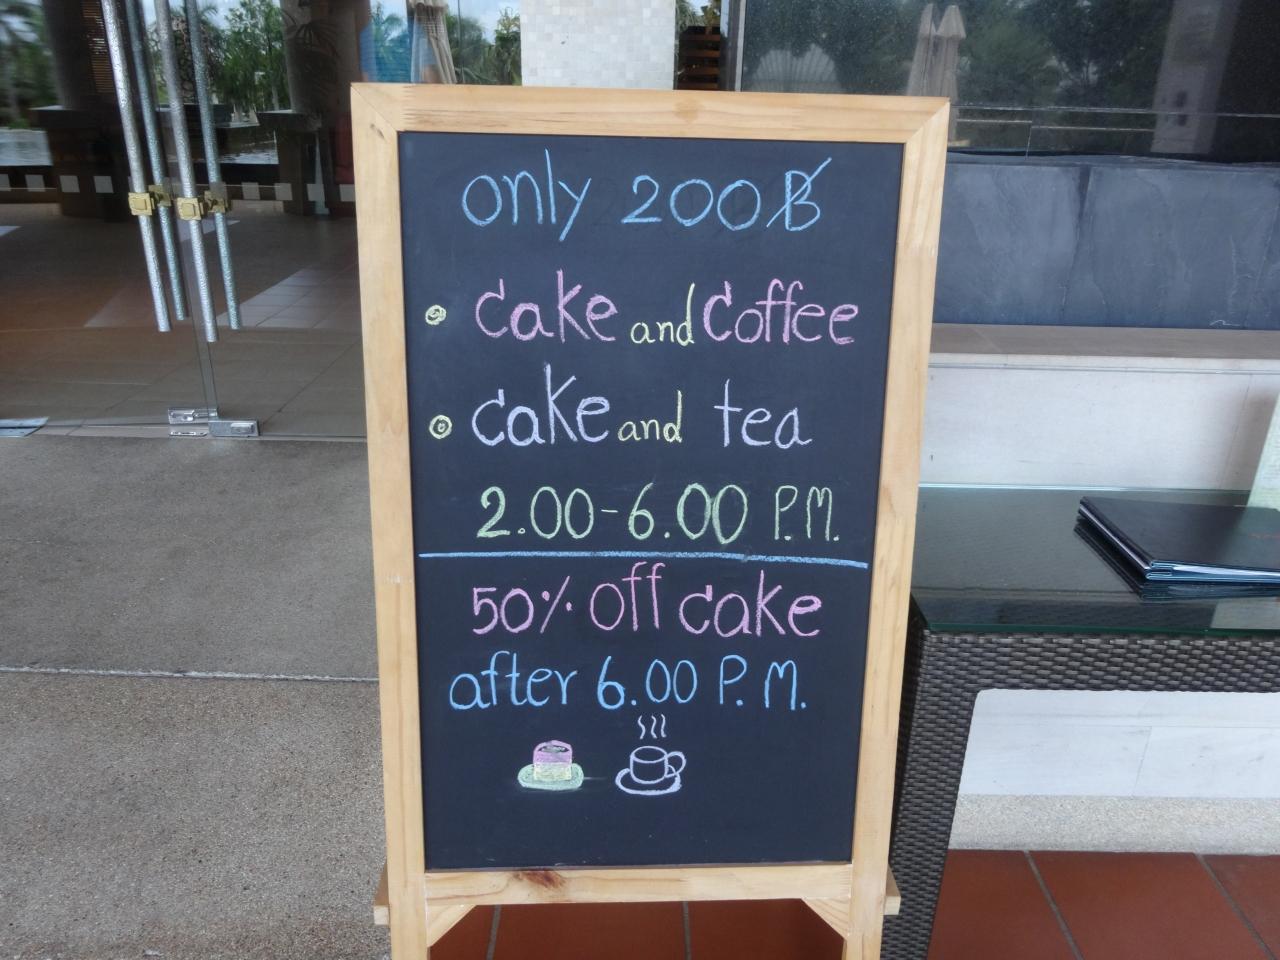 only 200 ฿
cake and coffee
cake and tea
2.00-6.00 P.M.
50% off cake
after 6.00 P.M.